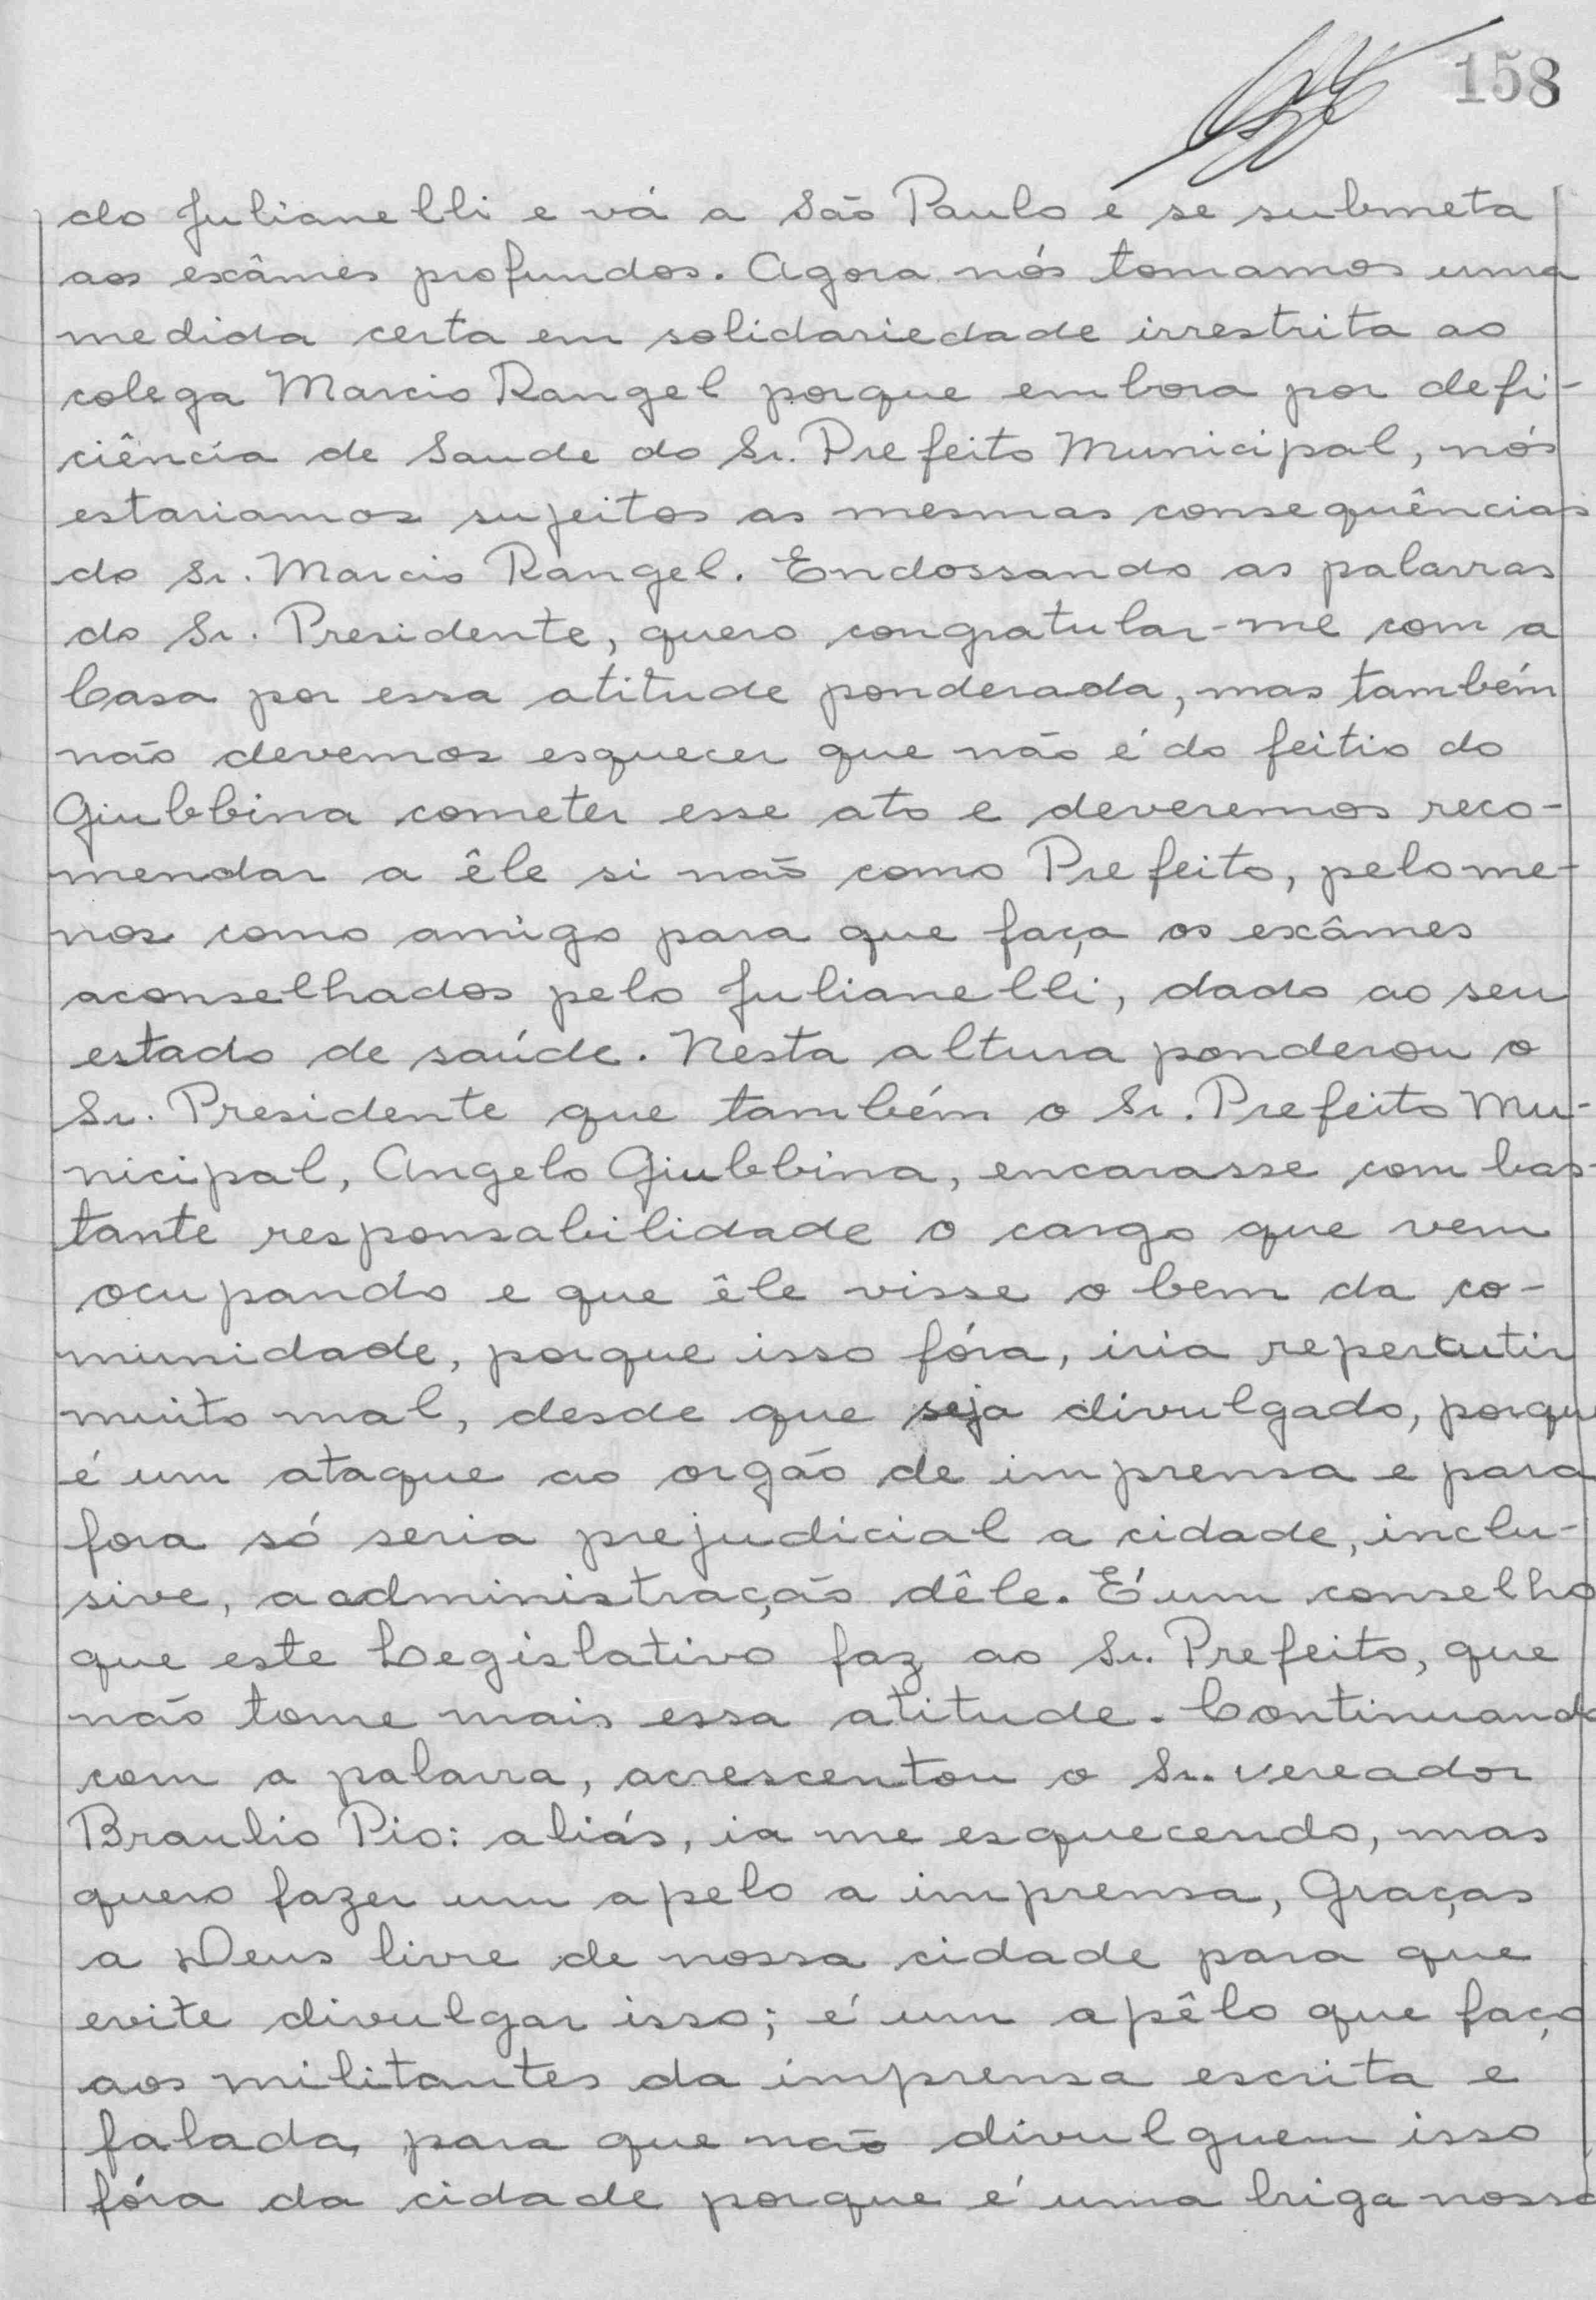 158
do Julianelli e vá a São Paulo e se submeta
aos exâmes profundos. Agora nós tomamos uma
medida certa em solidariedade irrestrita ao
colega Marcio Rangel porque embora por defi-
ciência de Saude do Sr. Prefeito Municipal, nós
estariamos sujeitos as mesmas consequências
do Sr. Marcio Rangel. Endossando as palavras
do Sr. Presidente, quero congratular-me com a
Casa por essa atitude ponderada, mas também
não devemos esquecer que não é do feitio do
Giubbina cometer esse ato e deveremos reco-
mendar a êle si não como Prefeito, pelo me-
nos como amigo para que faça os exâmes
aconselhados pelo Julianelli, dado ao seu
estado de saúde. Nesta altura ponderou o
Sr. Presidente que também o Sr. Prefeito Mu-
nicipal, Angelo Giubbina, encarasse com bas-
tante responsabilidade o cargo que vem
ocupando e que êle visse o bem da co-
munidade, porque isso fóra, iria repercutir
muito mal, desde que seja divulgado, porque
é um ataque ao orgão de imprensa e para
fora só seria prejudicial a cidade, inclu-
sive, a administração dêle. É um conselho
que este Legislativo faz ao Sr. Prefeito, que
não tome mais essa atitude. Continuando
com a palavra, acrescentou o Sr. vereador
Braulio Pio: aliás, ia me esquecendo, mas
quero fazer um apelo a imprensa, Graças
a Deus livre de nossa cidade para que
evite divulgar isso; é um apêlo que faço
aos militantes da imprensa escrita e
falada, para que não divulguem isso
fóra da cidade porque é uma briga nossa